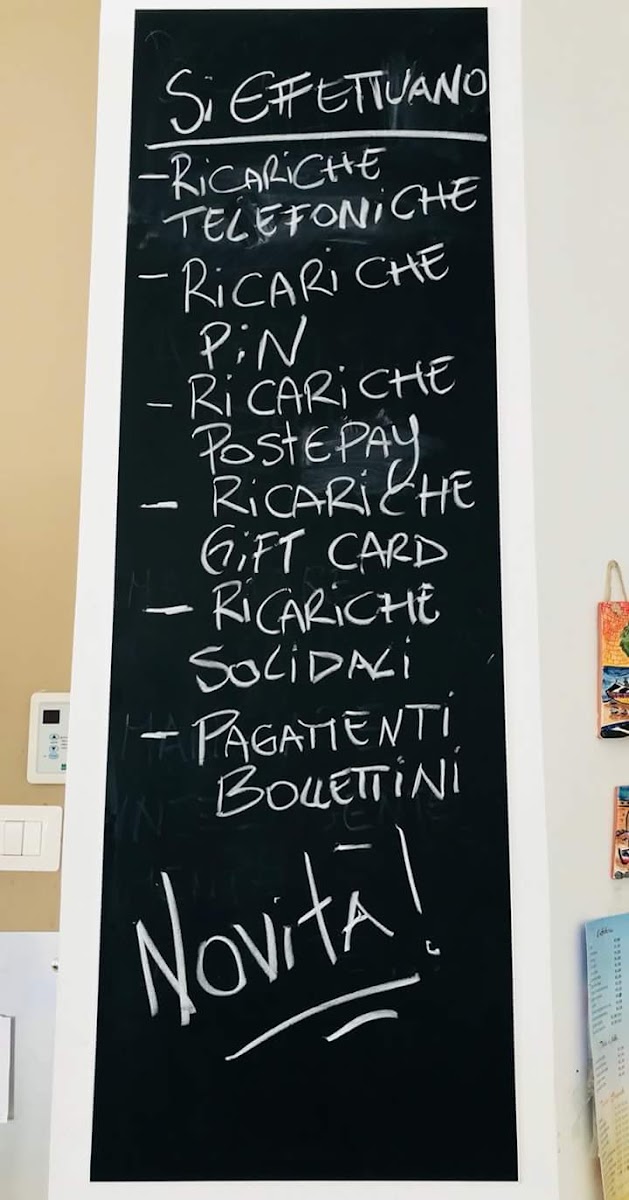 Si EFFETTUANO
- RiCARiCHE
TELEFONiCHE
- RiCARiCHE
PiN
- RiCARiCHE
POSTEPAY
- RiCARiCHE
GiFT CARD
- RiCARiCHE
SOLiDALi
- PAGAMENTi
BOLLETTiNi
NOViTÀ!